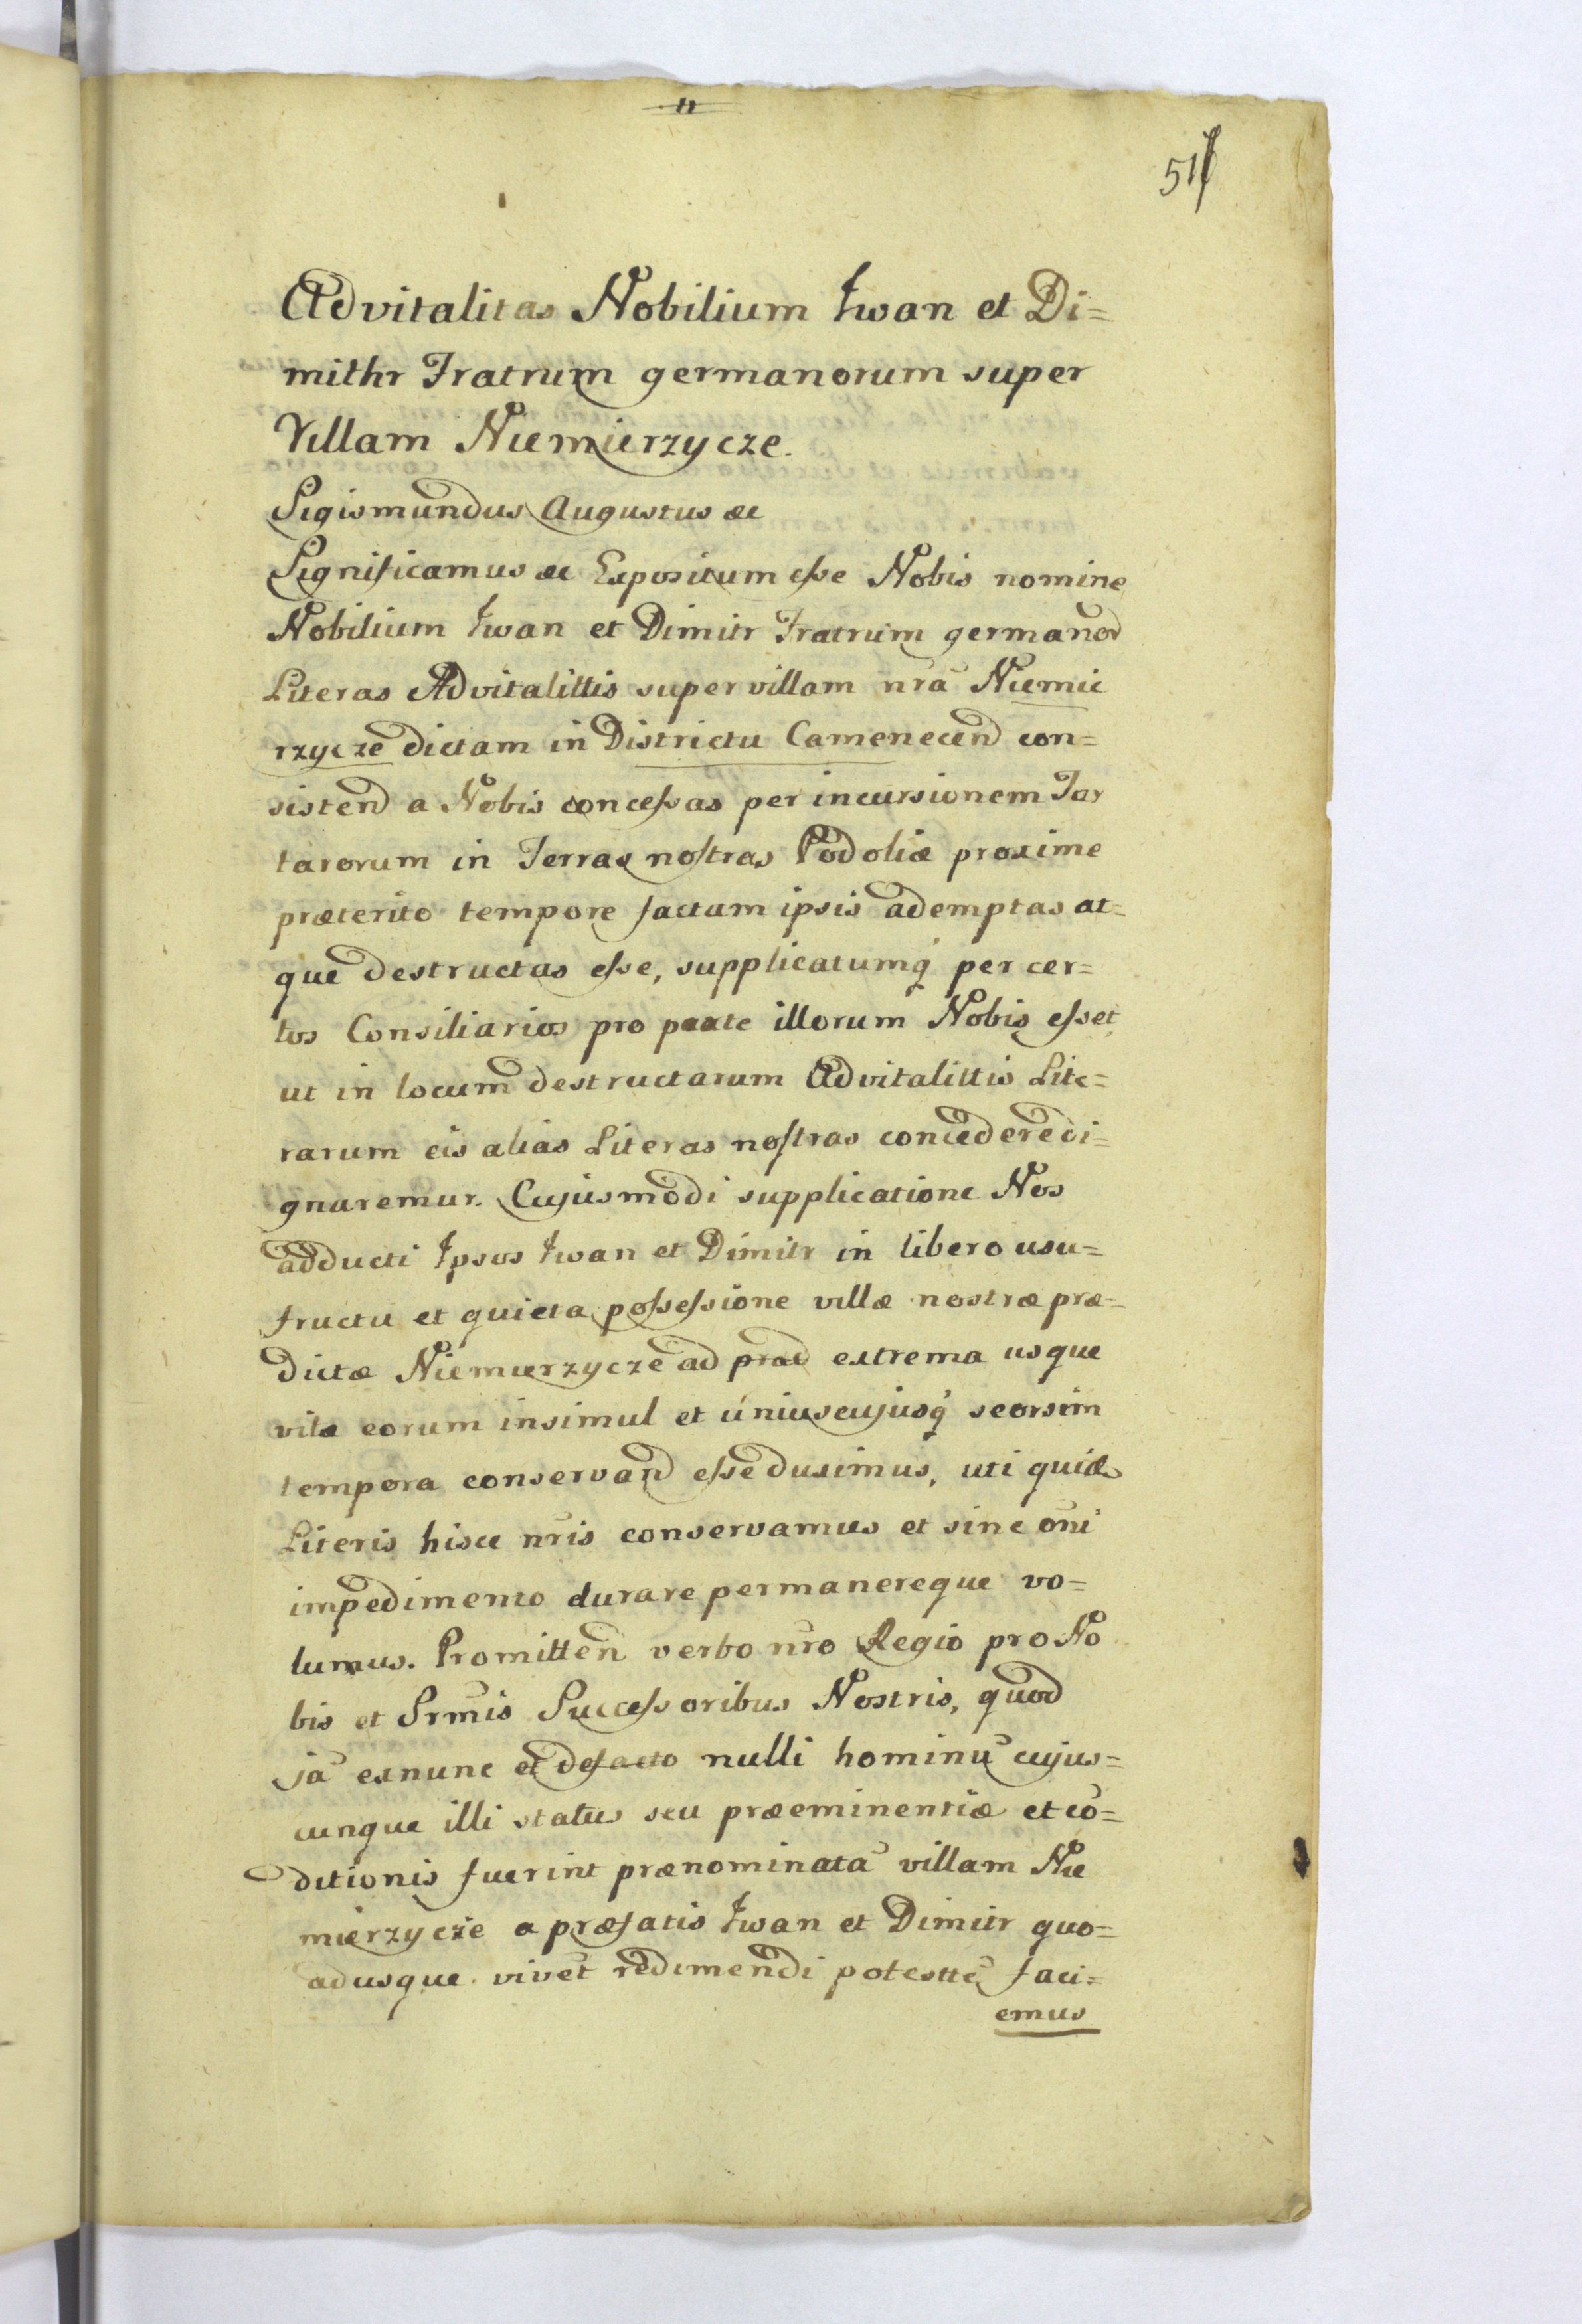 51
Advitalitas Nobilium Iwan et Di=
mithr Fratrum germanorum super
Villam Niemierzycze.
Sigismundus Augustus &c
Significamus &c Expositum esse Nobis nomine
Nobilium Iwan et Dimitr Fratrum germanor̄
Literas Advitalittis super villam nrā Niemie
rzycze dictam in Districtu Camenecen̄ con=
sisten̄ a Nobis concessas per incursionem Tar
tarorum in Terras nostras Podoliæ proxime
præterito tempore factam ipsis ademptas at=
que destructas esse, supplicatumq́ per cer=
tos Consiliarios pro parte illorum Nobis esset
ut in locum destructarum Advitalittis Lite=
rarum eis alias Literas nostras concedere di=
gnaremur. Cujusmodi supplicatione Nos
adducti Ipsos Iwan et Dimitr in libero usu=
fructu et quieta possessione villæ nostræ præ=
dictæ Niemierzycze ad extrema usque
vitæ eorum insimul et úniuscujusq́ seorsim
tempora conservan̄ esse duximus, uti quidē
Literis hisce nr̄is conservamus et sine om̄i
impedimento durare permanereque vo=
lumus. Promitten̄ verbo nr̄o Regio pro No
bis et Srm̄is Successoribus Nostris, quod
jā exnunc et defacto nulli hominū cujus=
cunque illi status seu præeminentiæ et cō=
ditionis fuerint prænominatā villam Nie
mierzycze a præfatis Iwan et Dimitr quo=
adusque vivēt redimendi potesttē faci=
emus